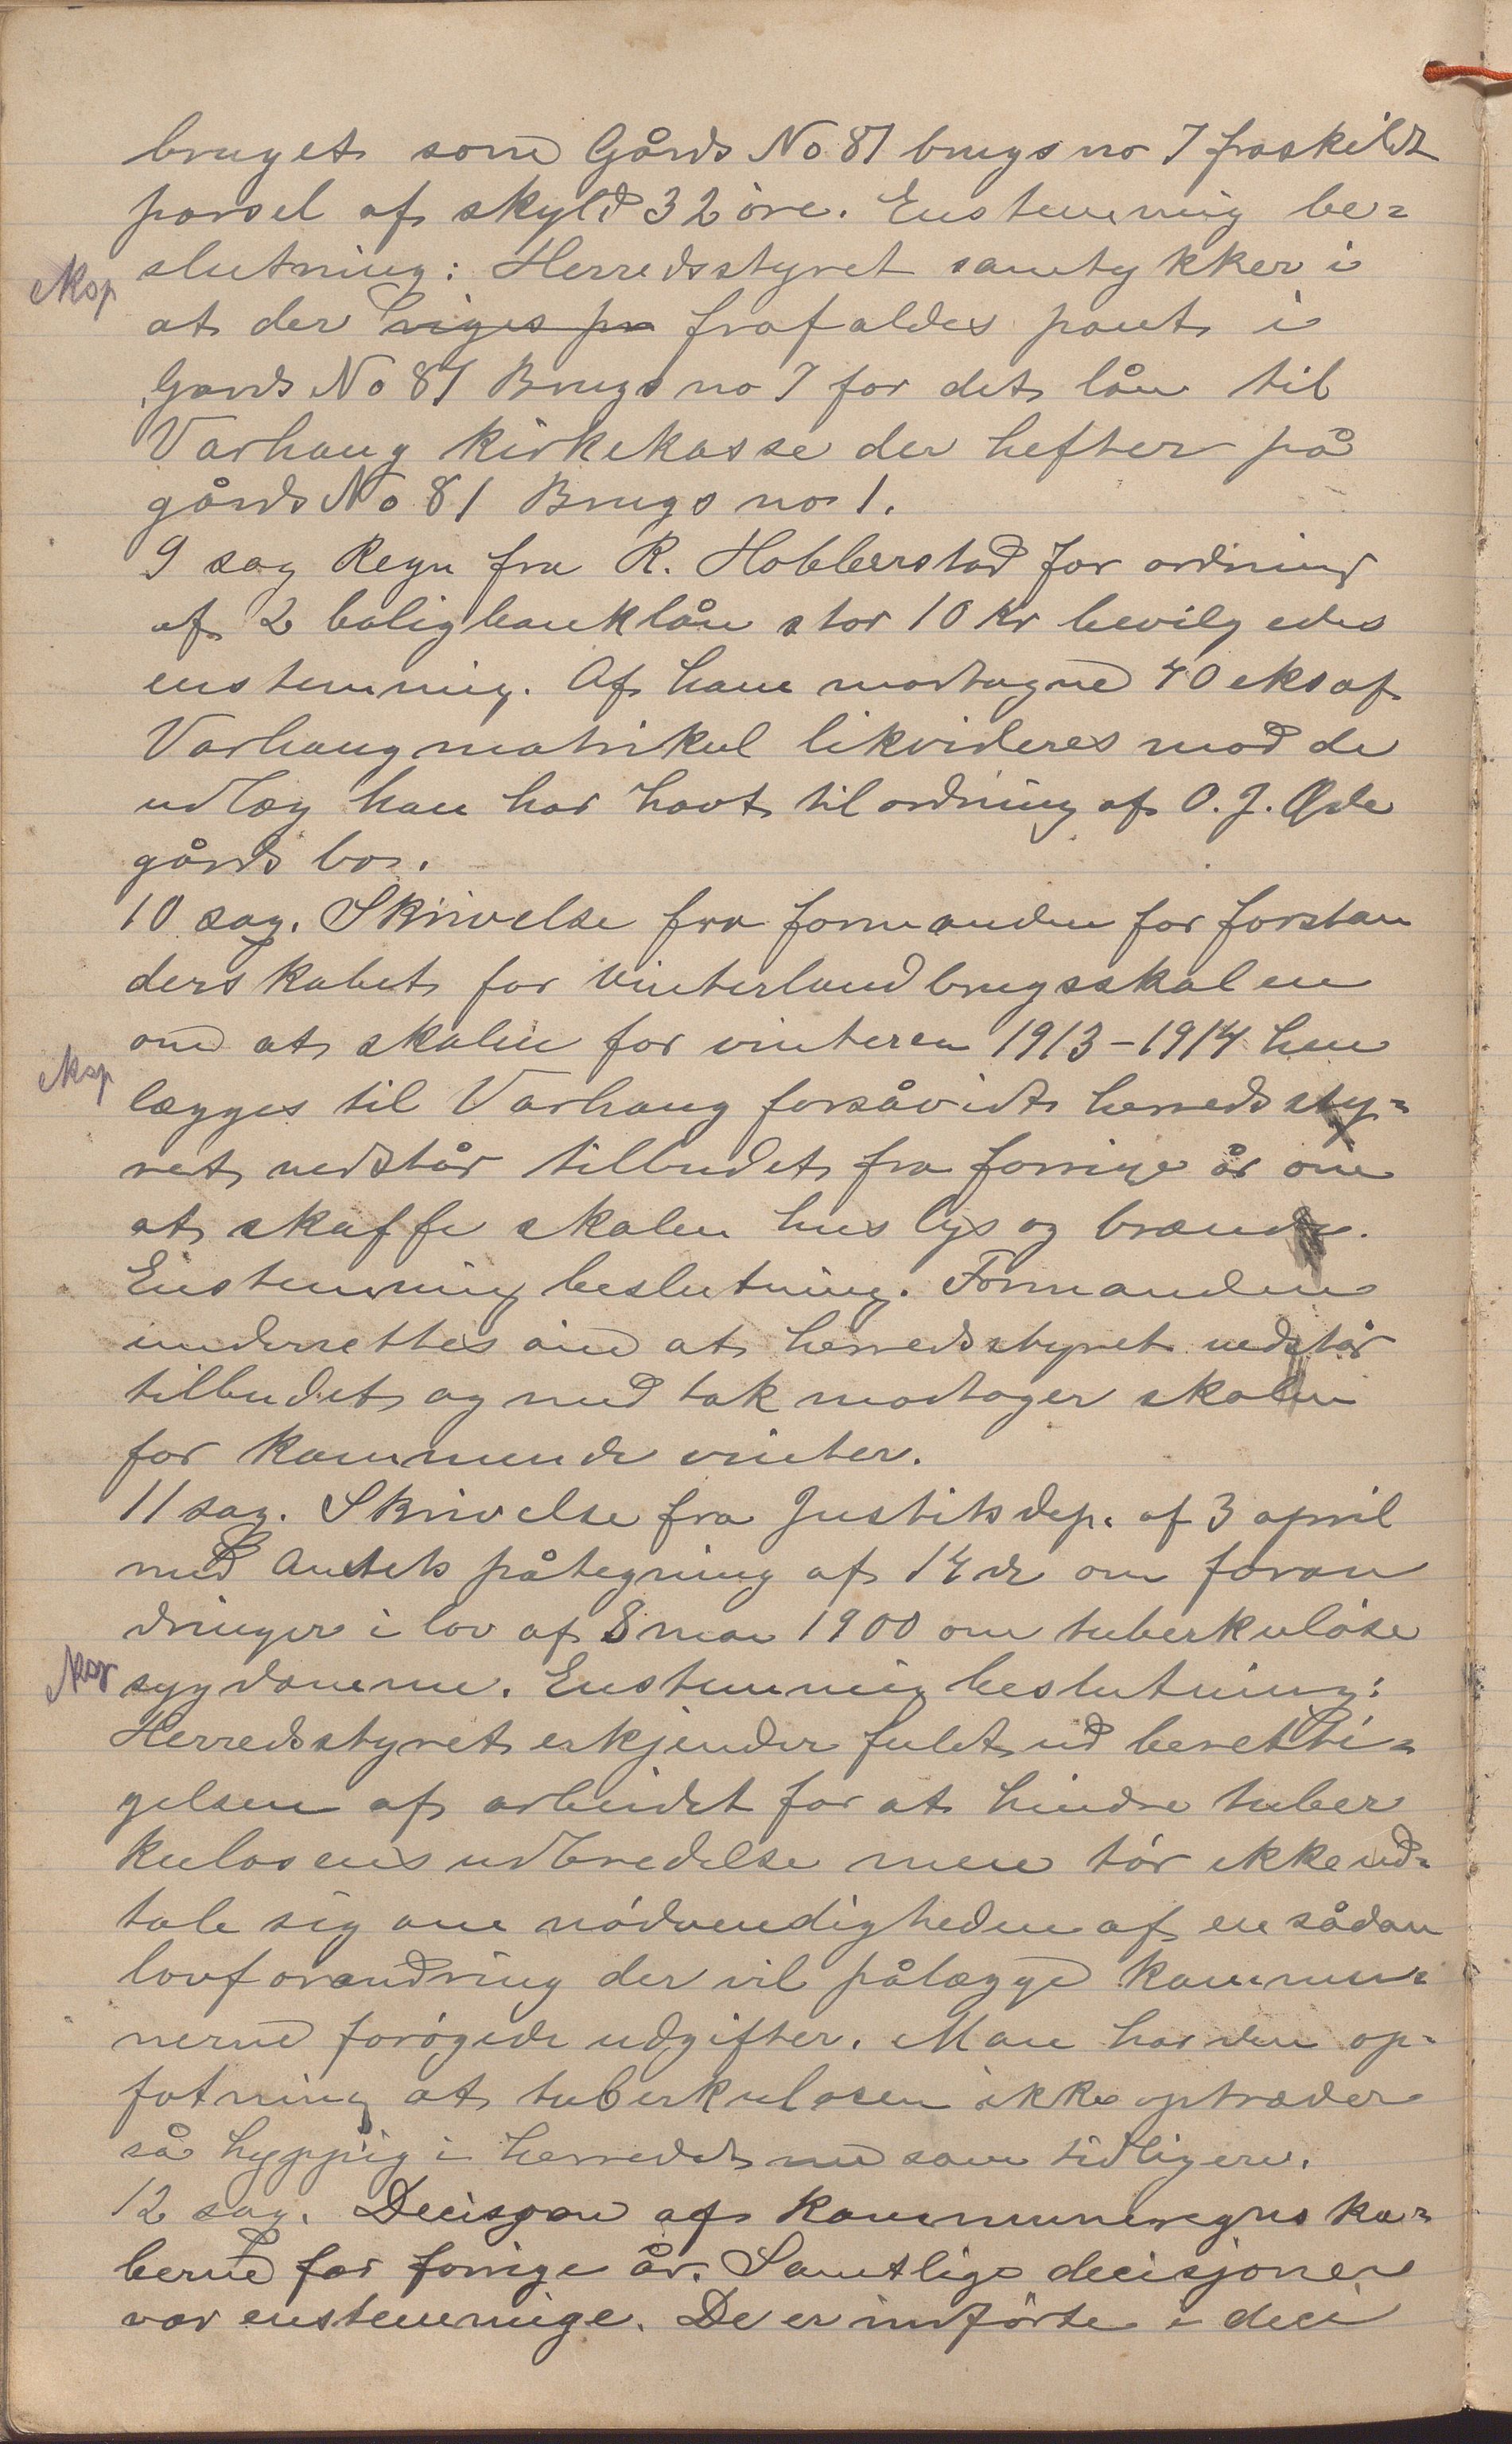 bruget som Gårds No 81 brugs no 7 fraskildt
parsel af skyld 32 øre. Enstemmig be=
eksp slutning: Herredsstyret samtykker i
at der viges pr frafaldes pant i
Gards No 81 Brugs no 7 for det lån til
Varhaug kirkekasse der hefter på
gårds No 81 Brugs no 1.
9 sag Regn fra R. Hobberstad for ordning
af 2 boligbanklån stor 10 kr bevilgedes
enstemmig. Af ham modtagne 40 eks af
Varhaug matrikul likvideres mod de
udlæg han har havt til ordning af O. J. Øde
gårds bo.
10 sag. Skrivelse fra formanden for forstan
derskabet for vinterlandbrugsskolen
om at skolen for vinteren 1913-1914 hen
eksp
lægges til Varhaug forsåvidt herredssty=
ret vedstår tilbudet fra forrige år om
at skaffe skolen hus lys og brænde.
Enstemmig beslutning. Formanden
underrettes om at herredsstyret vedstår
tilbudet og med tak modtager skolen
for kommende vinter.
11 sag. Skrivelse fra Justitsdep. af 3 april
med Amtets påtegning af 14 ds om foran
dringer i lov af 8 mai 1900 om tuberkuløse
eksp sygdomme. Enstemmig beslutning:
Herredsstyret erkjender fuldt ud beretti=
gelsen af arbeidet for at hindre tuber
kulosens udbredelse men tør ikke ud=
tale sig om nødvendigheden af en sådan
lovforandring der vil pålægge kommu=
nerne forøgede udgifter. Man har den op=
fatning at tuberkulosen ikke optræder
så hyppig i herredet nu som tidligere.
12 sag. Decisjon af kommuneregnska=
berne for forrige år. Samtlige decisjoner
var enstemmige. De er indførte i deci